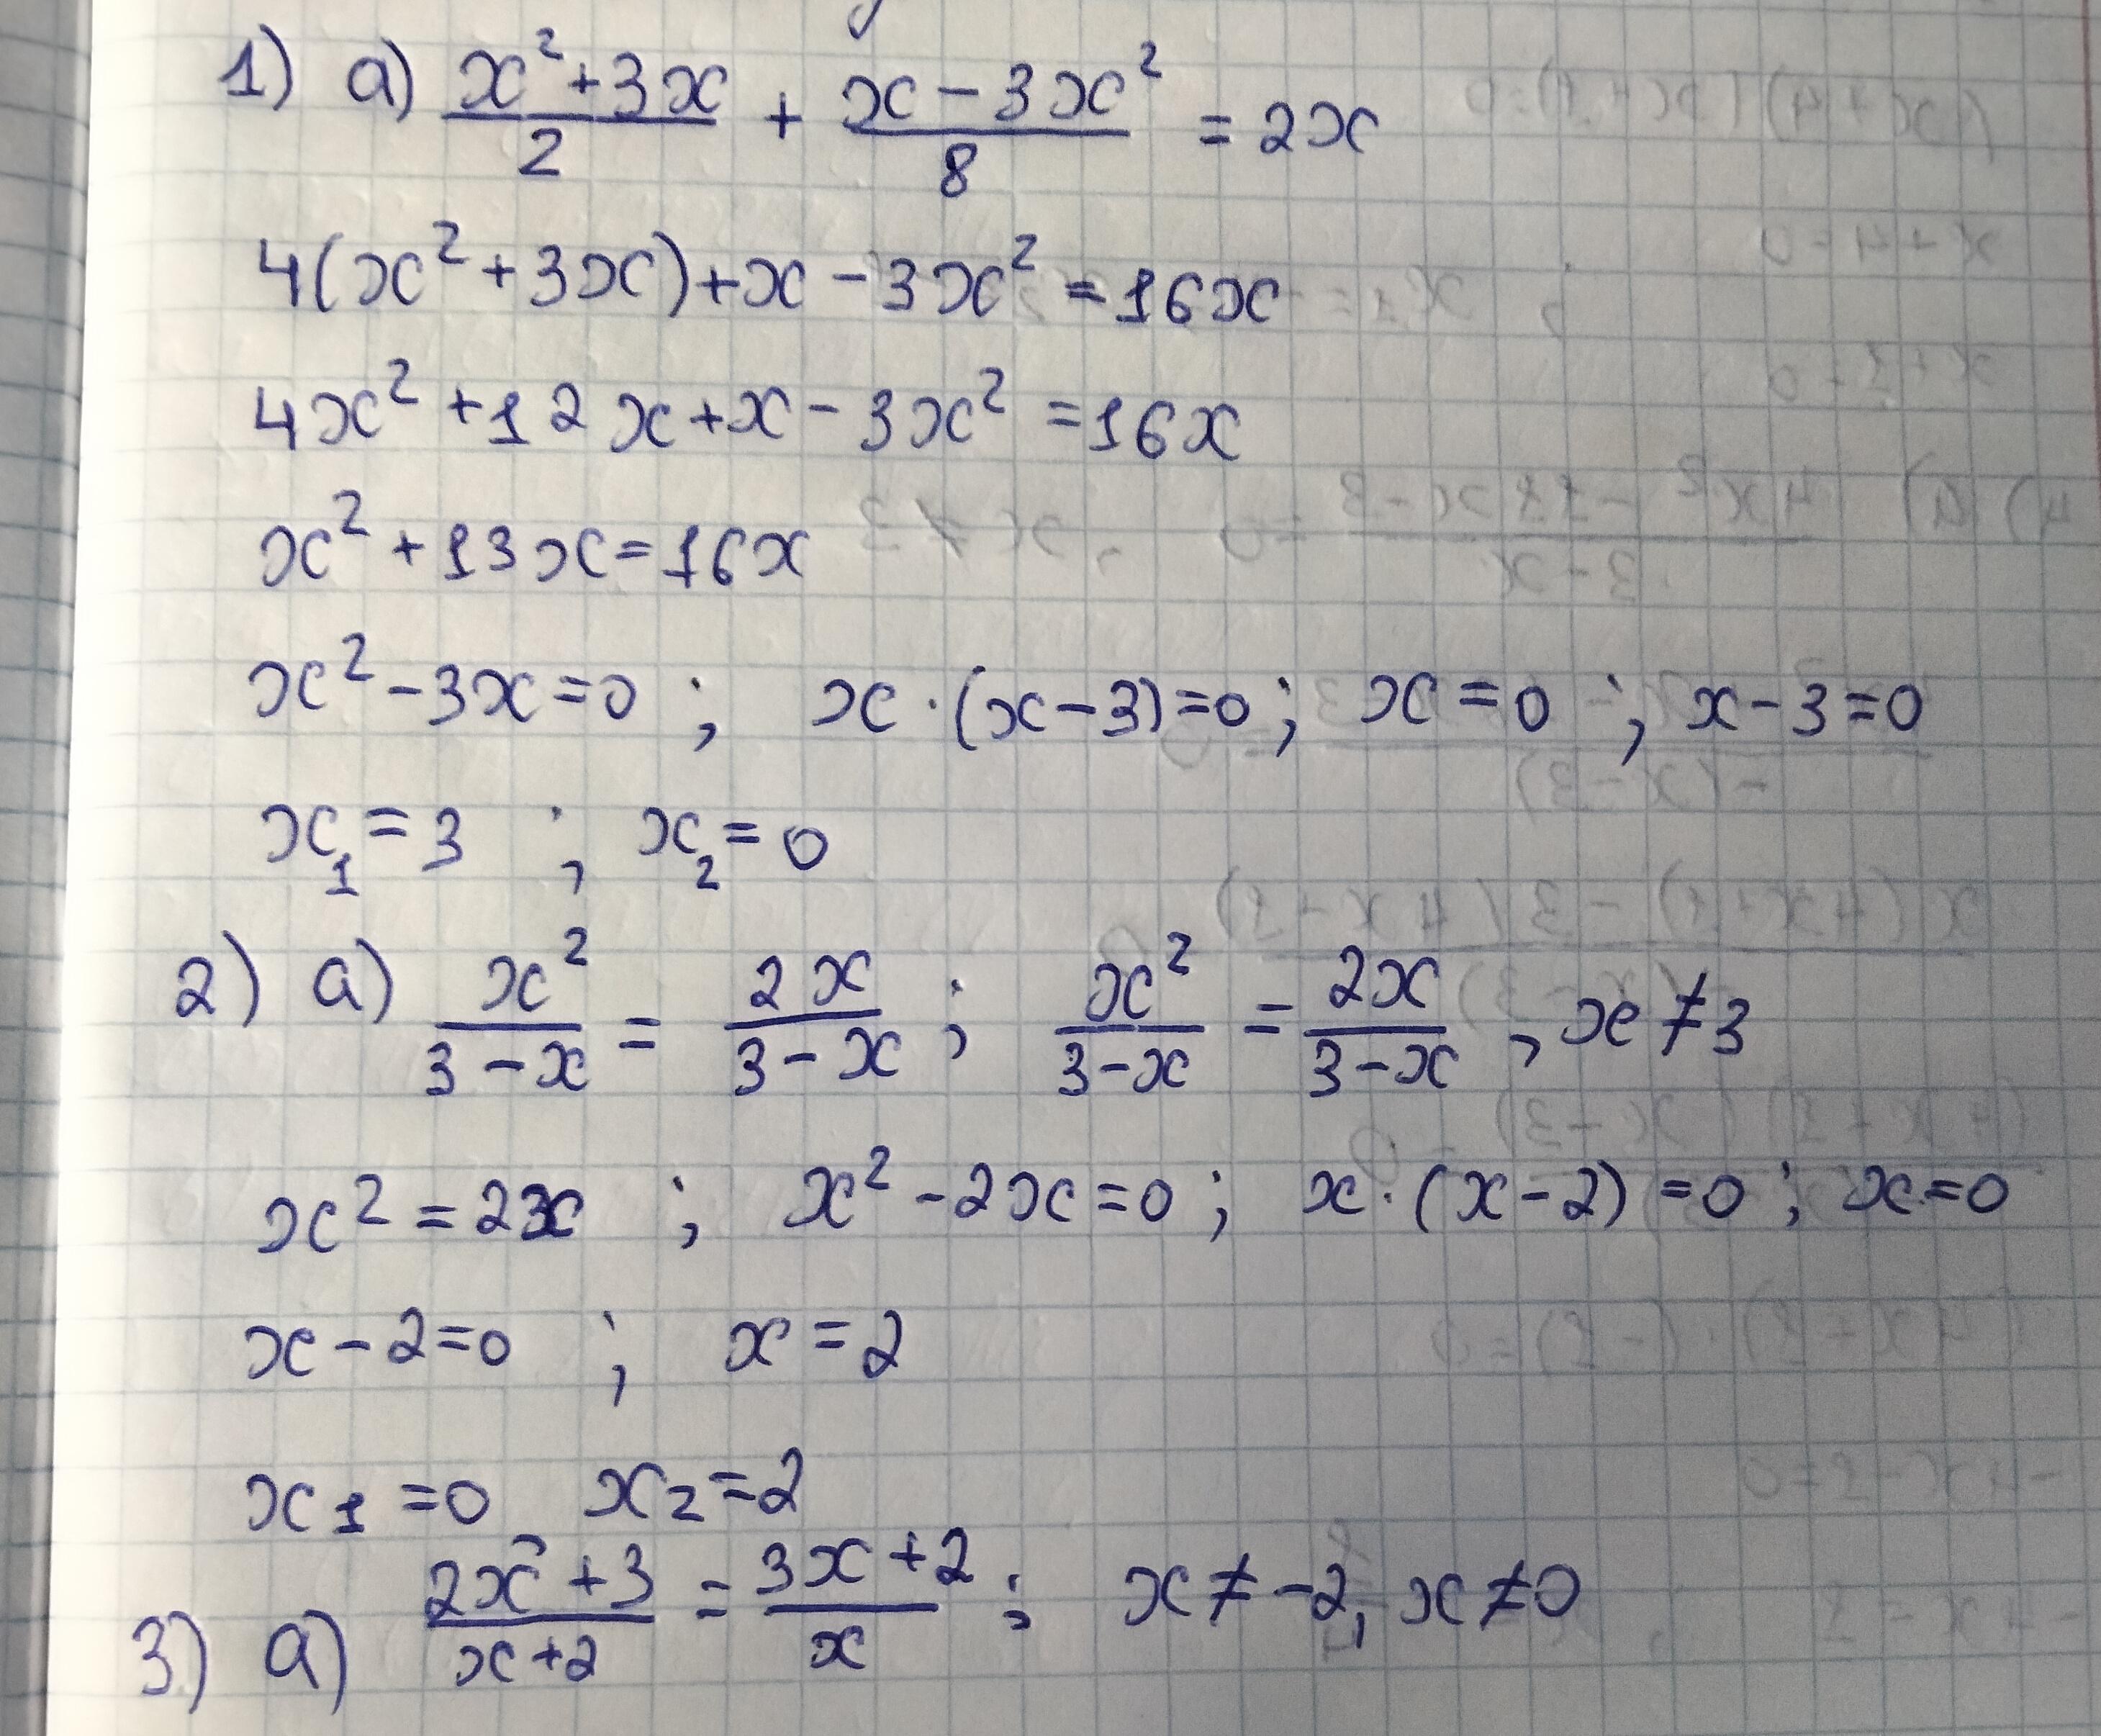 1) а) (x² + 3x)/2 + (x - 3x²)/8 = 2x
4(x² + 3x) + x - 3x² = 16x
4x² + 12x + x - 3x² = 16x
x² + 13x = 16x
x² - 3x = 0 ; x · (x - 3) = 0 ; x = 0 ; x - 3 = 0
x₁ = 3 ; x₂ = 0
2) а) x²/(3 - x) = 2x/(3 - x) ; x²/(3 - x) = 2x/(3 - x) , x ≠ 3
x² = 2x ; x² - 2x = 0 ; x · (x - 2) = 0 ; x = 0
x - 2 = 0 ; x = 2
x₁ = 0 x₂ = 2
3) а) (2x + 3)/(x + 2) = (3x + 2)/x ; x ≠ -2, x ≠ 0